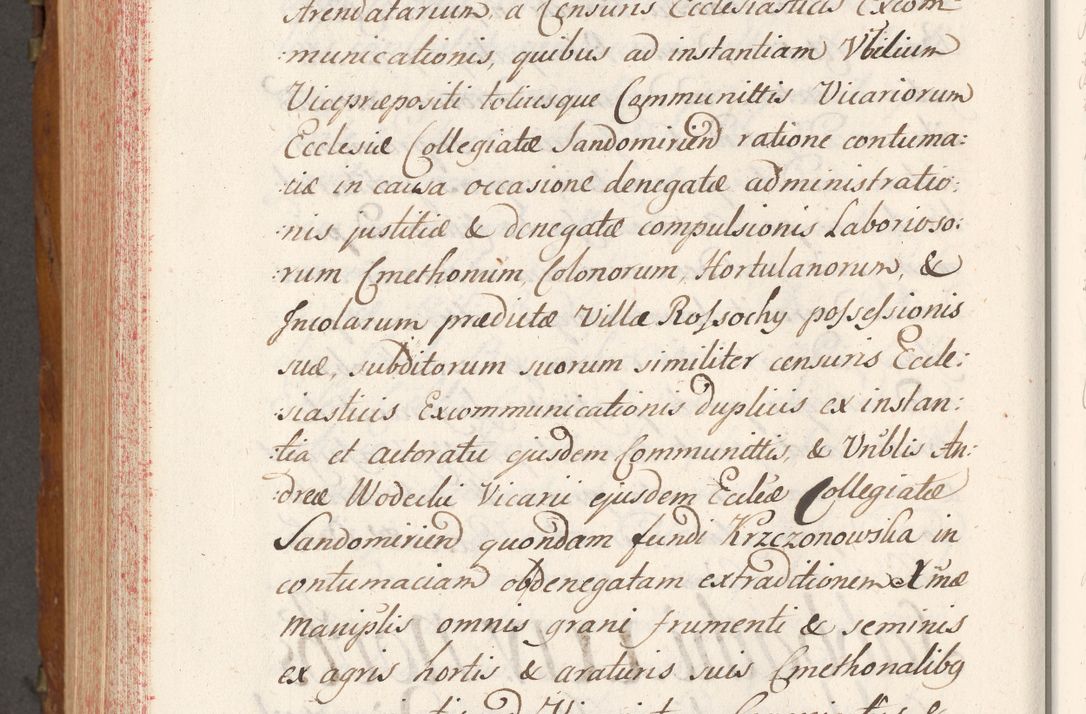 Arendatarium, a Censuris Ecclesiasticis Excom-
municationis, quibus ad instantiam Vbilium
Vicepræpositi totiusque Communittis Vicariorum
Ecclesiæ Collegiatæ Sandomirien̄ ratione contuma:
ciæ in causa occasione denegatæ administratio:
nis justitiæ & denegatæ compulsionis Laborioso:
rum Cmethonum, Colonorum, Hortulanorum, &
Incolarum prædictæ Villæ Rossochy possessionis
suæ, subditorum suorum similiter censuris Eccle:
siasticis Excommunicationis duplicis ex instan:
tia et actoratu ejusdem Communittis, & Vnblis An:
dreæ Wodecki Vicarii ejusdem Eccleæ Collegiatæ
Sandomirien̄ quondam fundi Krzczonowska in
contumaciam obdenegatam extraditionem Xmæ
maniplis omnis grani frumenti & seminis
ex agris hortis & araturis suis Cmethonalibq